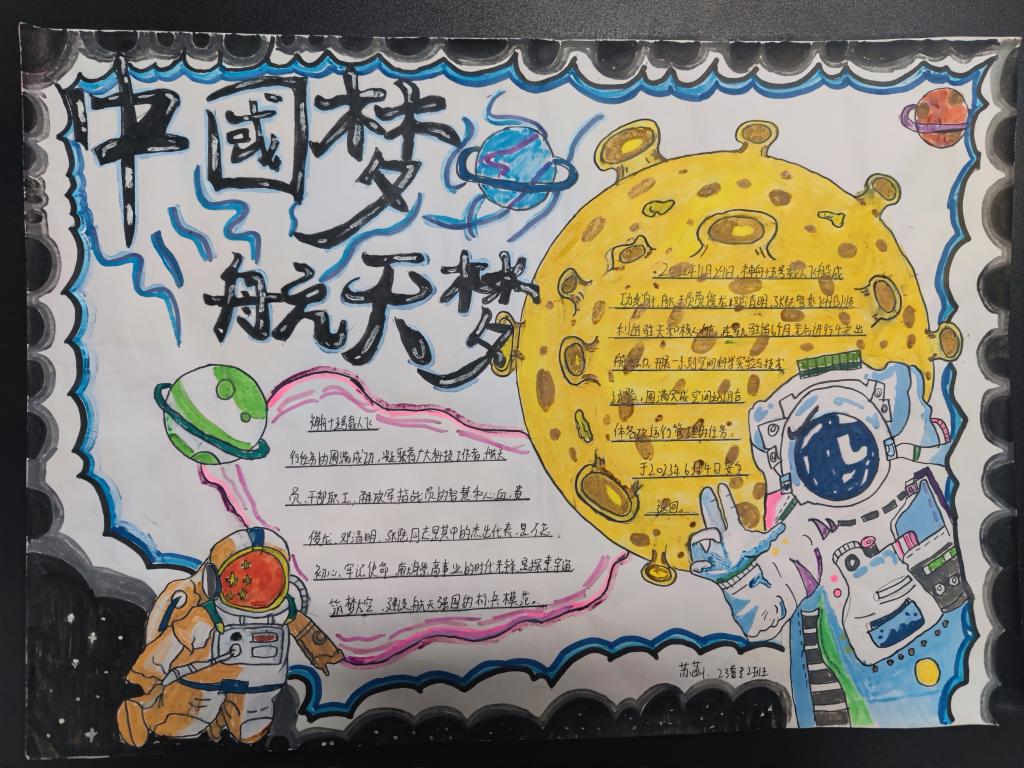 中國梦
航天梦
2022年11月29日，神舟十五号载人飞船
功发射，航天员费俊龙、邓清明、张陆
利进驻天和核心舱，
一系列空间科学实验与技术
试验，圆满完成空间站
运行管理的任务，
于2023年6月4日安全
返回。
神舟十五号载人飞
行任务的圆满成功，凝聚着广大科技工作者、航天
员、干部职工、解放军指战员的智慧和心血，费
俊龙、邓清明、张陆同志是其中的杰出代表，是不忘
初心、牢记使命、献身崇高事业的时代先锋，是探索宇宙
筑梦太空、建设航天强国的标兵模范。
苏 23 2班